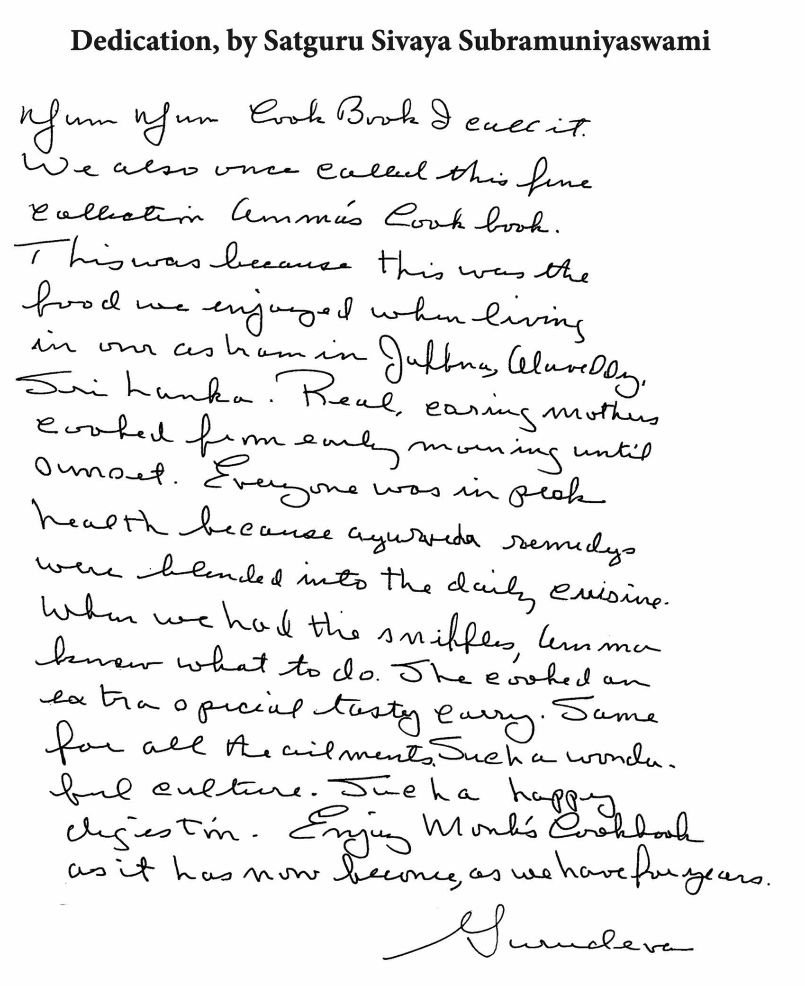 Dedication, by Satguru Sivaya Subramuniyaswami
Nyum Nyum Cook Book I call it.
We also once called this fine
collection Amma's Cook book.
This was because this was the
food we enjoyed when living
in our ashram in Jaffna, Alaveddy,
Sri Lanka. Real, caring mothers
cooked from early morning until
sunset. Everyone was in peak
health because ayurveda remedys
were blended into the daily cuisine.
When we had the sniffles, Amma
knew what to do. She cooked an
extra special tasty curry. Same
for all the ailments. Such a wonder-
ful culture. Such a happy
digestion. Enjoy Monk's Cookbook
as it has now become, as we have for years.
Gurudeva